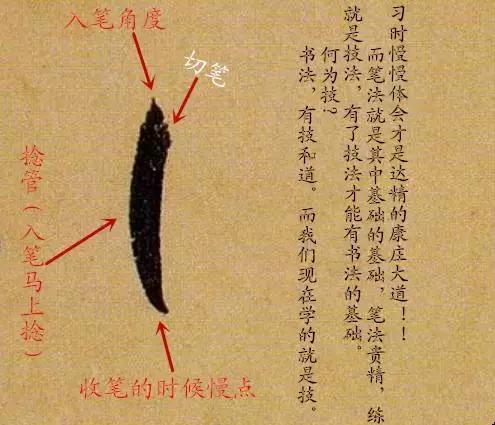 入笔角度
切笔
捻管（入笔马上捻）
收笔的时候慢点
书法，有技和道。而我们现在学的就是技。
何为技？
就是技法，有了技法才能有书法的基础。
而笔法就是其中基础的基础，笔法贵精，练
习时慢慢体会才是达精的康庄大道！！